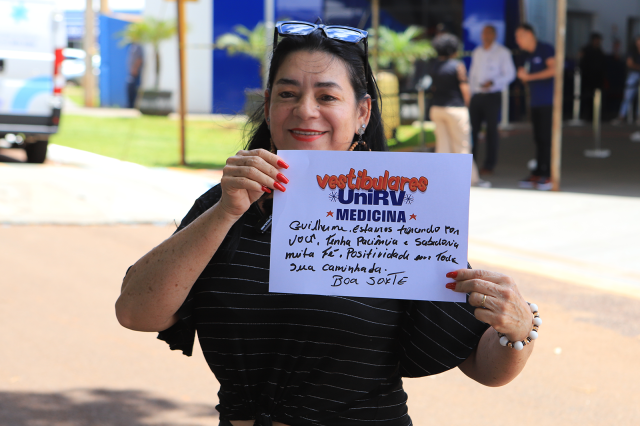 vestibulares
UniRV
MEDICINA
Guilherme, estamos torcendo por
você, tenha Paciência e Sabedoria
muita Fé, Positividade em toda
sua caminhada.
BOA SORTE